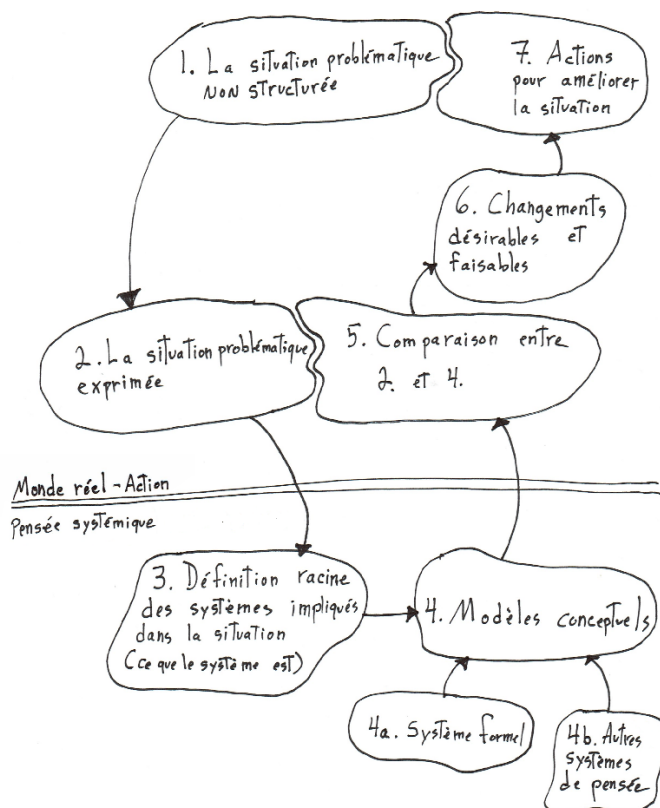 1. La situation problématique
NON structurée
7. Actions
pour améliorer
la situation
6. Changements
désirables et
faisables
2. La situation problématique
exprimée
5. Comparaison entre
2. et 4.
Monde réel - Action
Pensée systémique
3. Définition racine
des systèmes impliqués
dans la situation
(ce que le système est)
4. Modèles conceptuels
4a. Système formel
4b. Autres
systèmes
de pensée